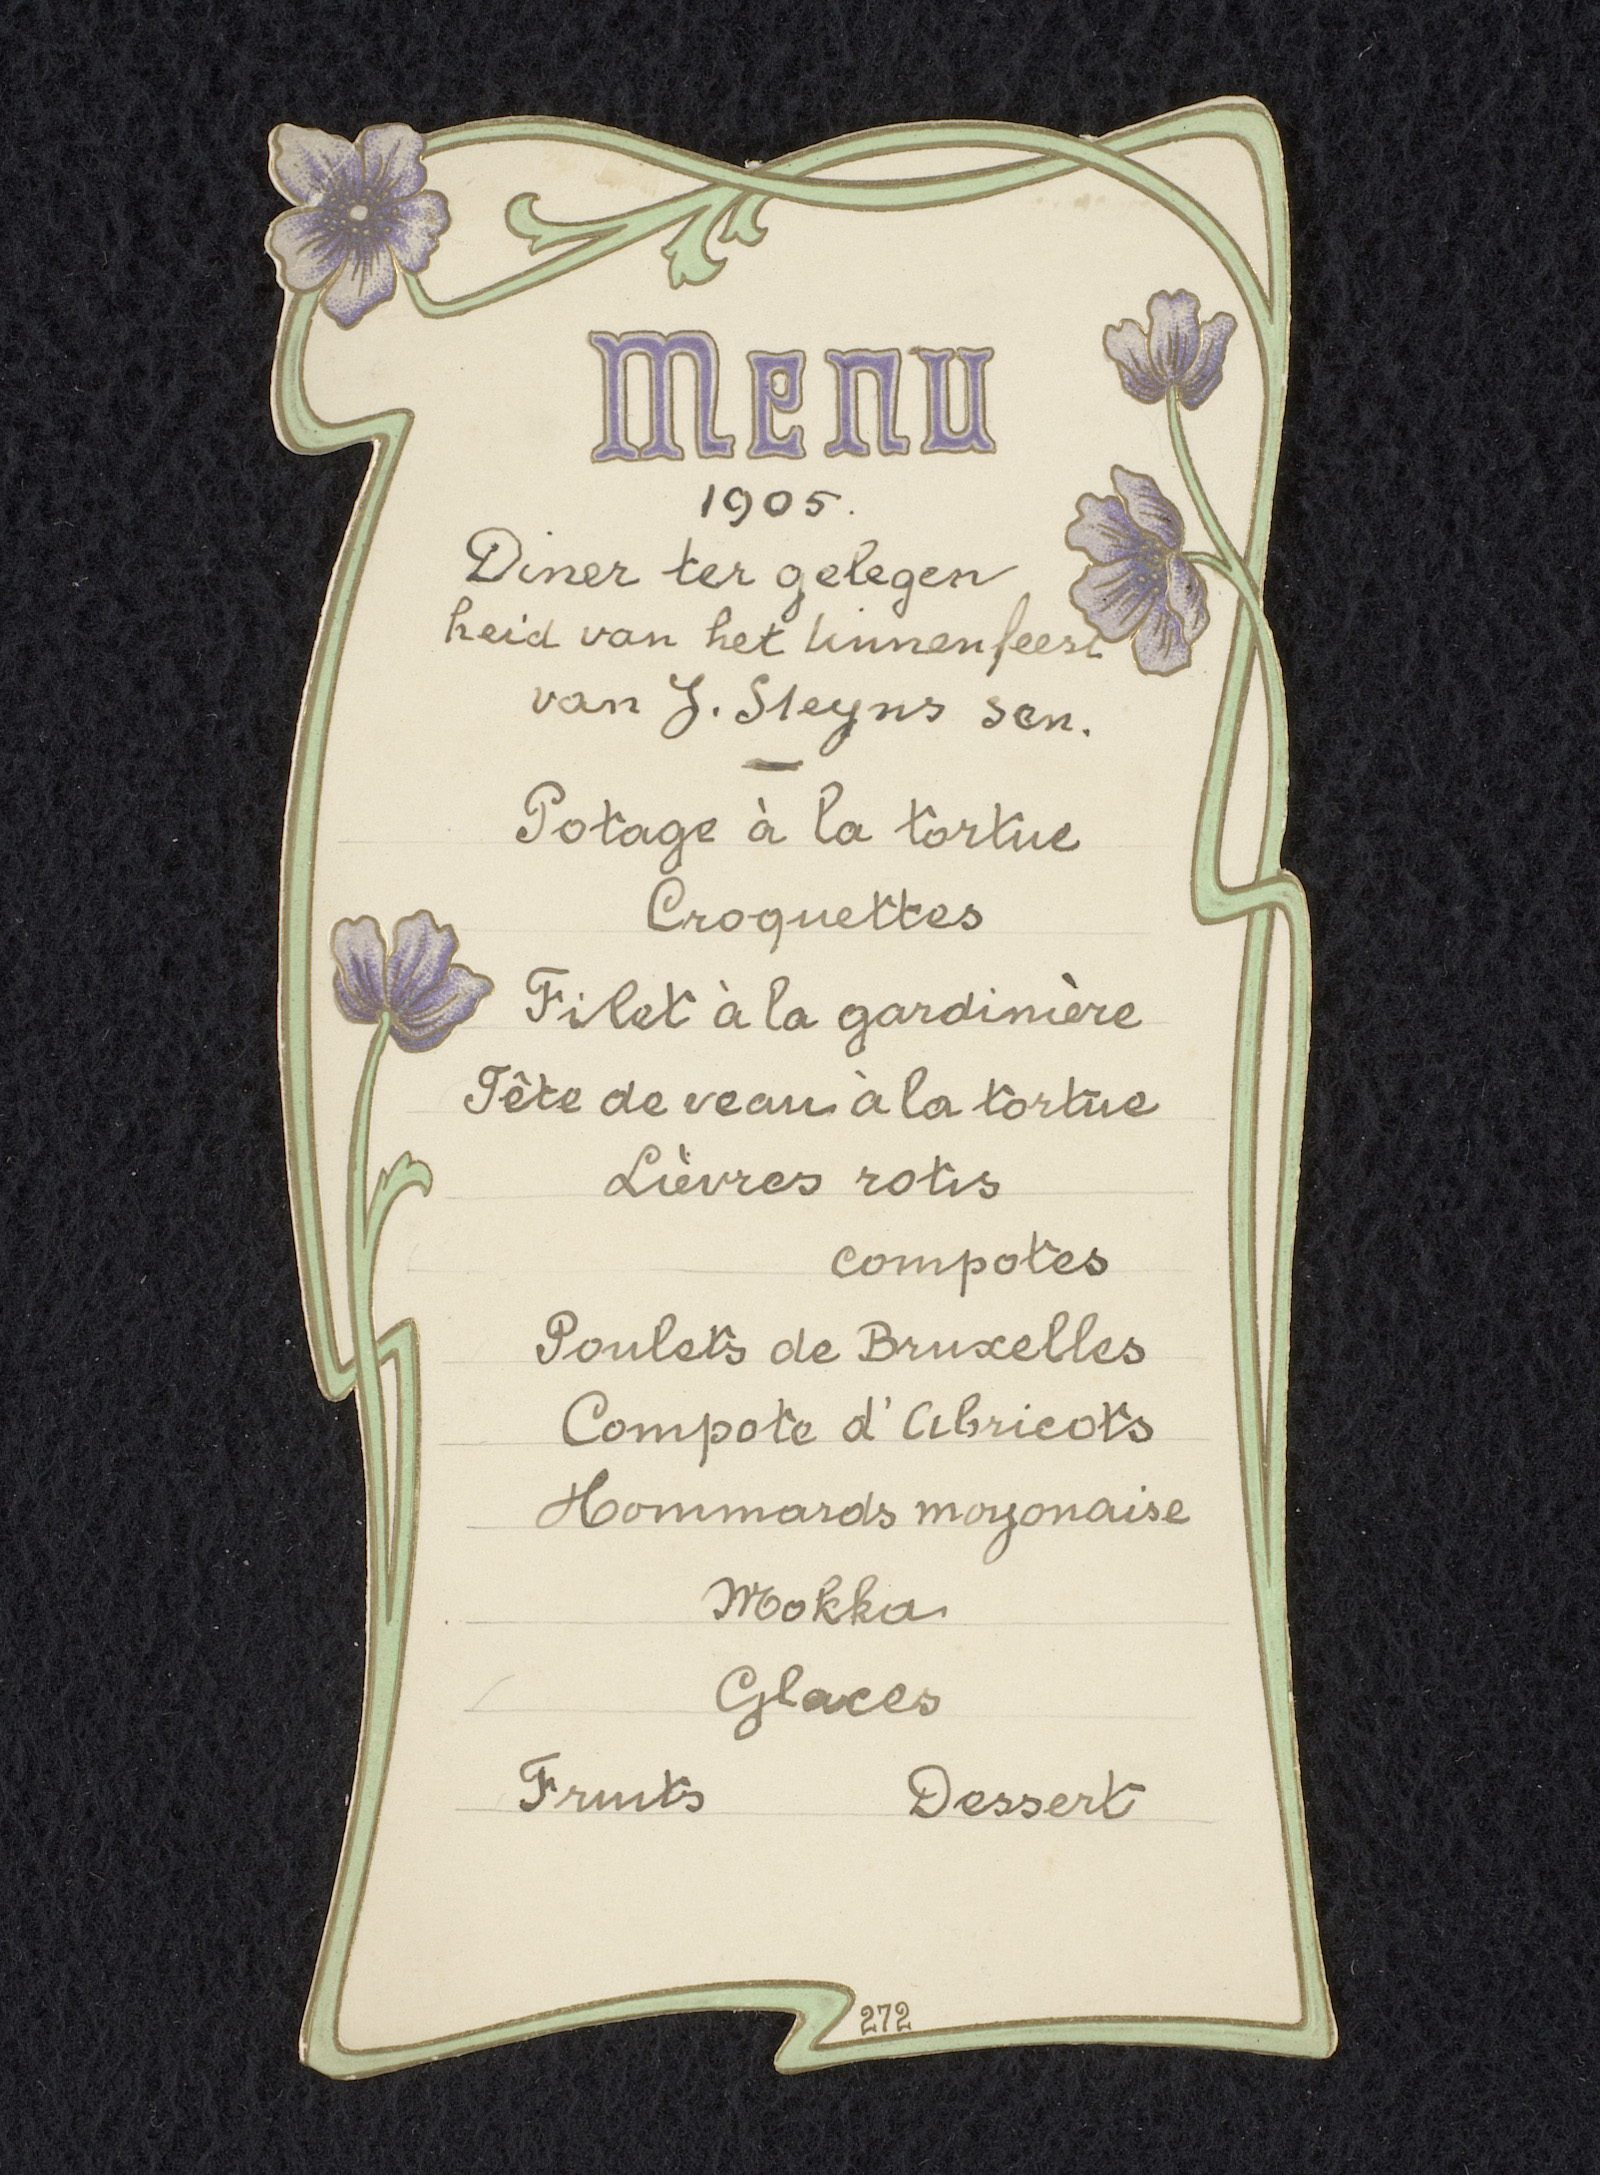 Menu
1905.
Diner ter gelegen
heid van het linnenfeest
van J. Steyns sen.
Potage à la tortue
Croquettes
Filet à la gardinière
Tête de veau à la tortue
Lièvres rotis
compotes
Poulets de Bruxelles
Compote d'Abricots
Hommards mayonaise
Mokka
Glaces
Fruits Dessert
272